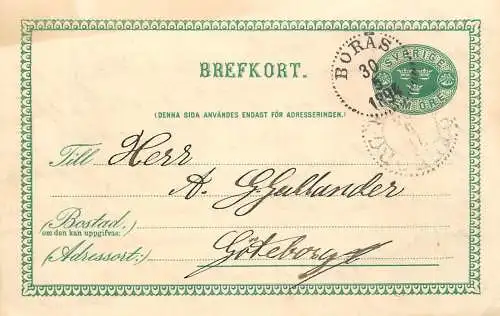 BREFKORT.
SVERIGE
FEM ÖRE
BORÅS
30
189
(DENNA SIDA ANVÄNDES ENDAST FÖR ADRESSERINGEN.)
Till Herr
A. G. Gullander
(Bostad.
om den kan uppgifvas:)
Adressort:) Göteborg